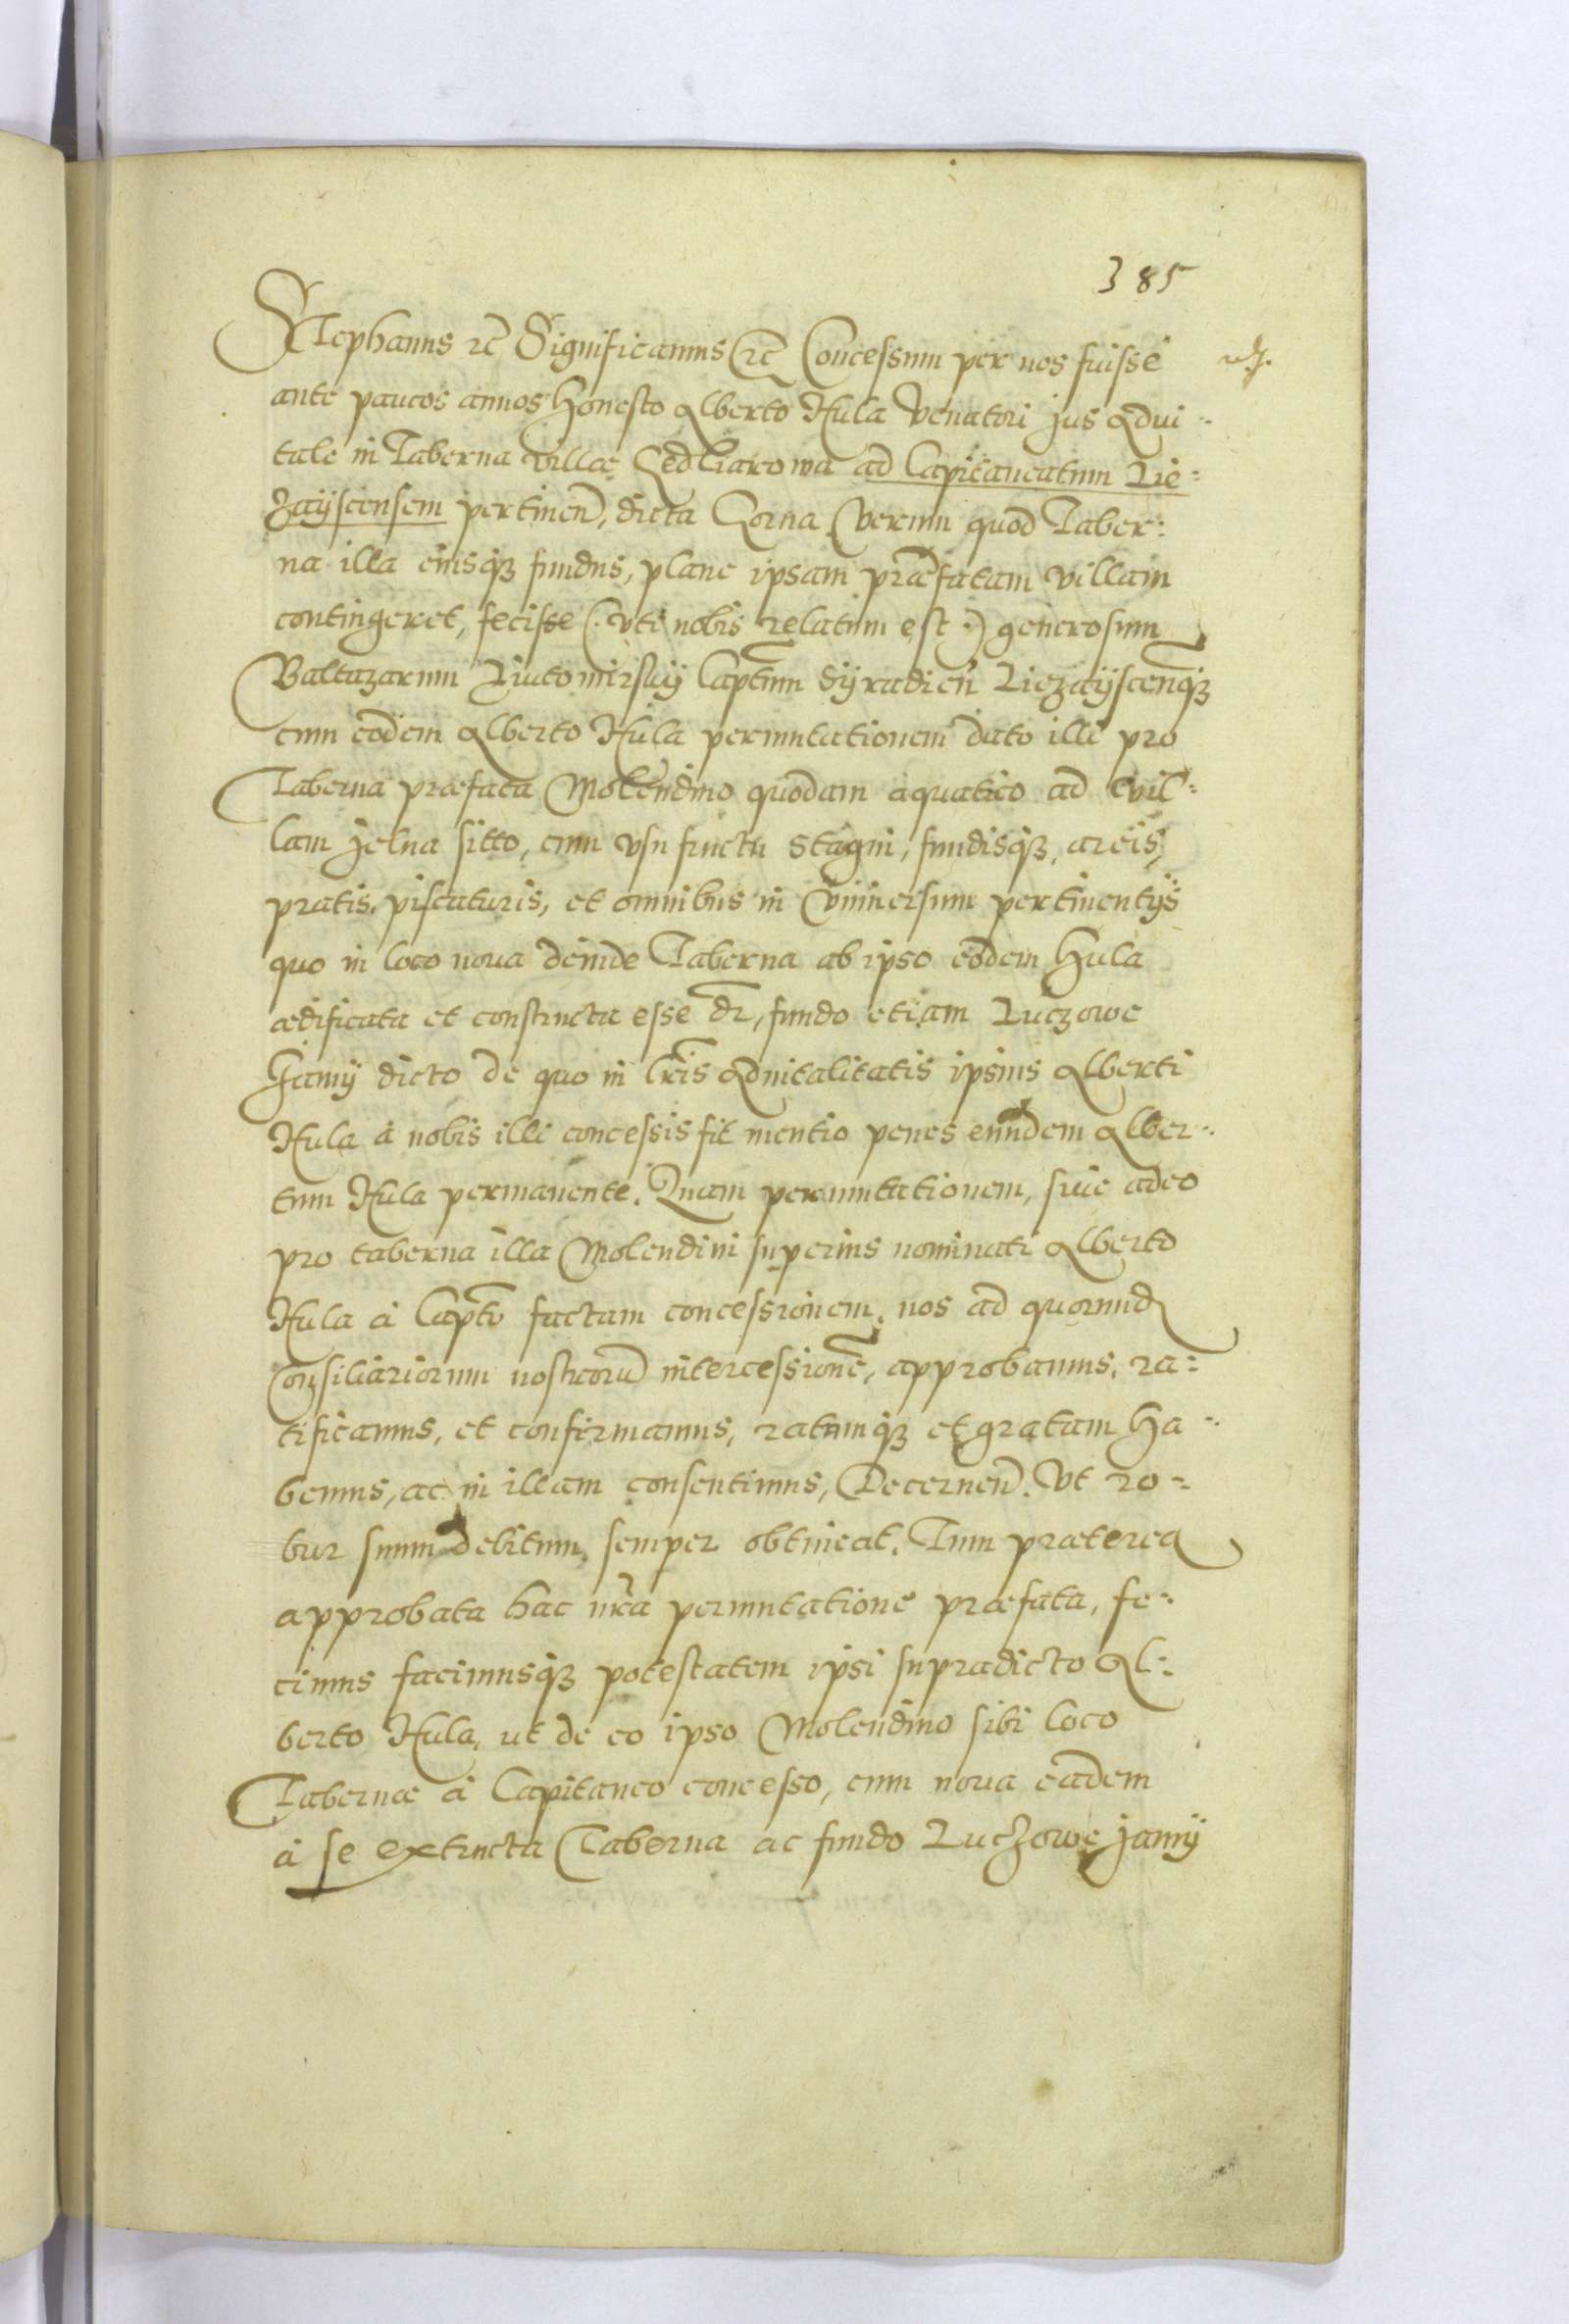 385
Stephanus etc Significamus etc Concessum per nos fuisse
ante paucos annos honesto Alberto Hula Venatori jus Advi-
tale in Taberna villae Sedliarowa ad Capitaneatum Lie-
zaÿscensem pertinen, dicta Gorna. Verum quod Taber-
na illa eiusq3 fundus, plane ipsam praefatam villam
contingeret, fecisse (: vti nobis relatum est :) generosum
Baltazarum Lutomirskÿ Captum Sÿradien Liezaÿscenq3
cum eodem Alberto Hula permutationem dato illi pro
Taberna praefata Molendino quodam aquatico ad vil-
lam Jelna sitto, cum vsu fructu Stagni, fundisq3, areis,
pratis, piscaturis, et omnibus in vniuersum pertinentÿs
quo in loco noua deinde Taberna ab ipso eodem Hula
aedificata et constructa esse dr, fundo etiam Luczowe
Jamÿ dicto de quo in lris Aduitalitatis ipsius Alberti
Hula à nobis illi concessis fit mentio penes eundem Alber-
tum Hula permanente. Quam permutationem, siue adeo
pro taberna illa Molendini superius nominati Alberto
Hula à Capto factam concessionem, nos ad quorund
Consiliariorum nostroru intercessione, approbamus, ra-
tificamus, et confirmamus, ratumq3 et gratam ha-
bemus, ac in illam consentimus, Decernen. Vt ro-
bur suum debitum semper obtineat. Tum praeterea
approbata hac nra permutatione praefata, fe-
cimus facimusq3 potestatem ipsi supradicto Al-
berto Hula, ut de eo ipso Molendino sibi loco
Tabernae à Capitaneo concesso, cum noua eadem
à se extructa Taberna ac fundo Luczowe Jamÿ